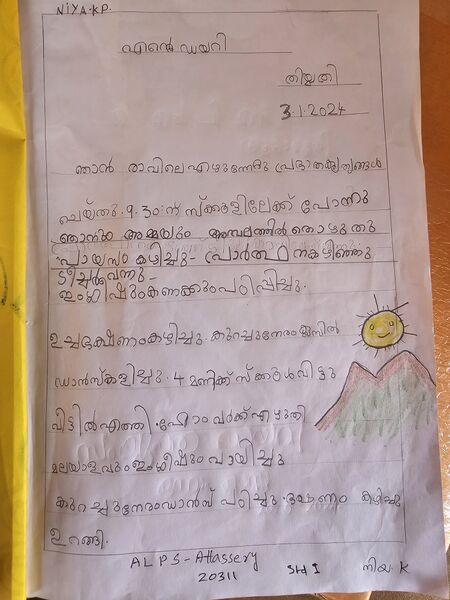 NIYA.K.P.
എന്റെ ഡയറി
തിയ്യതി
3.1.2024
ഞാൻ രാവിലെ എഴുന്നേറ്റു പ്രഭാതകൃത്യങ്ങൾ
ചെയ്തു. 9.30 ന് സ്ക്കൂളിലേക്ക് പോന്നു
ഞാനും അമ്മയും അമ്പലത്തിൽ തൊഴുതു
പായസം കഴിച്ചു- പ്രാർത്ഥനകഴിഞ്ഞു
ടീച്ചർവന്നു-
ഇംഗ്ലീഷുംകണക്കുംപഠിപ്പിച്ചു.
ഉച്ചഭക്ഷണംകഴിച്ചു. കുറച്ചുനേരം ക്ലാസിൽ
ഡാൻസ്കളിച്ചു. 4 മണിക്ക് സ്ക്കൂൾവിട്ടു
വീട്ടിൽ എത്തി. ഹോംവർക്ക് എഴുതി
മലയാളവുംഇംഗ്ലീഷും വായിച്ചു
കുറച്ചുനേരംഡാൻസ് പഠിച്ചു. ഭക്ഷണം കഴിച്ചു
ഉറങ്ങി.
ALPS-Attassery
20311
Std I
നിയ. K